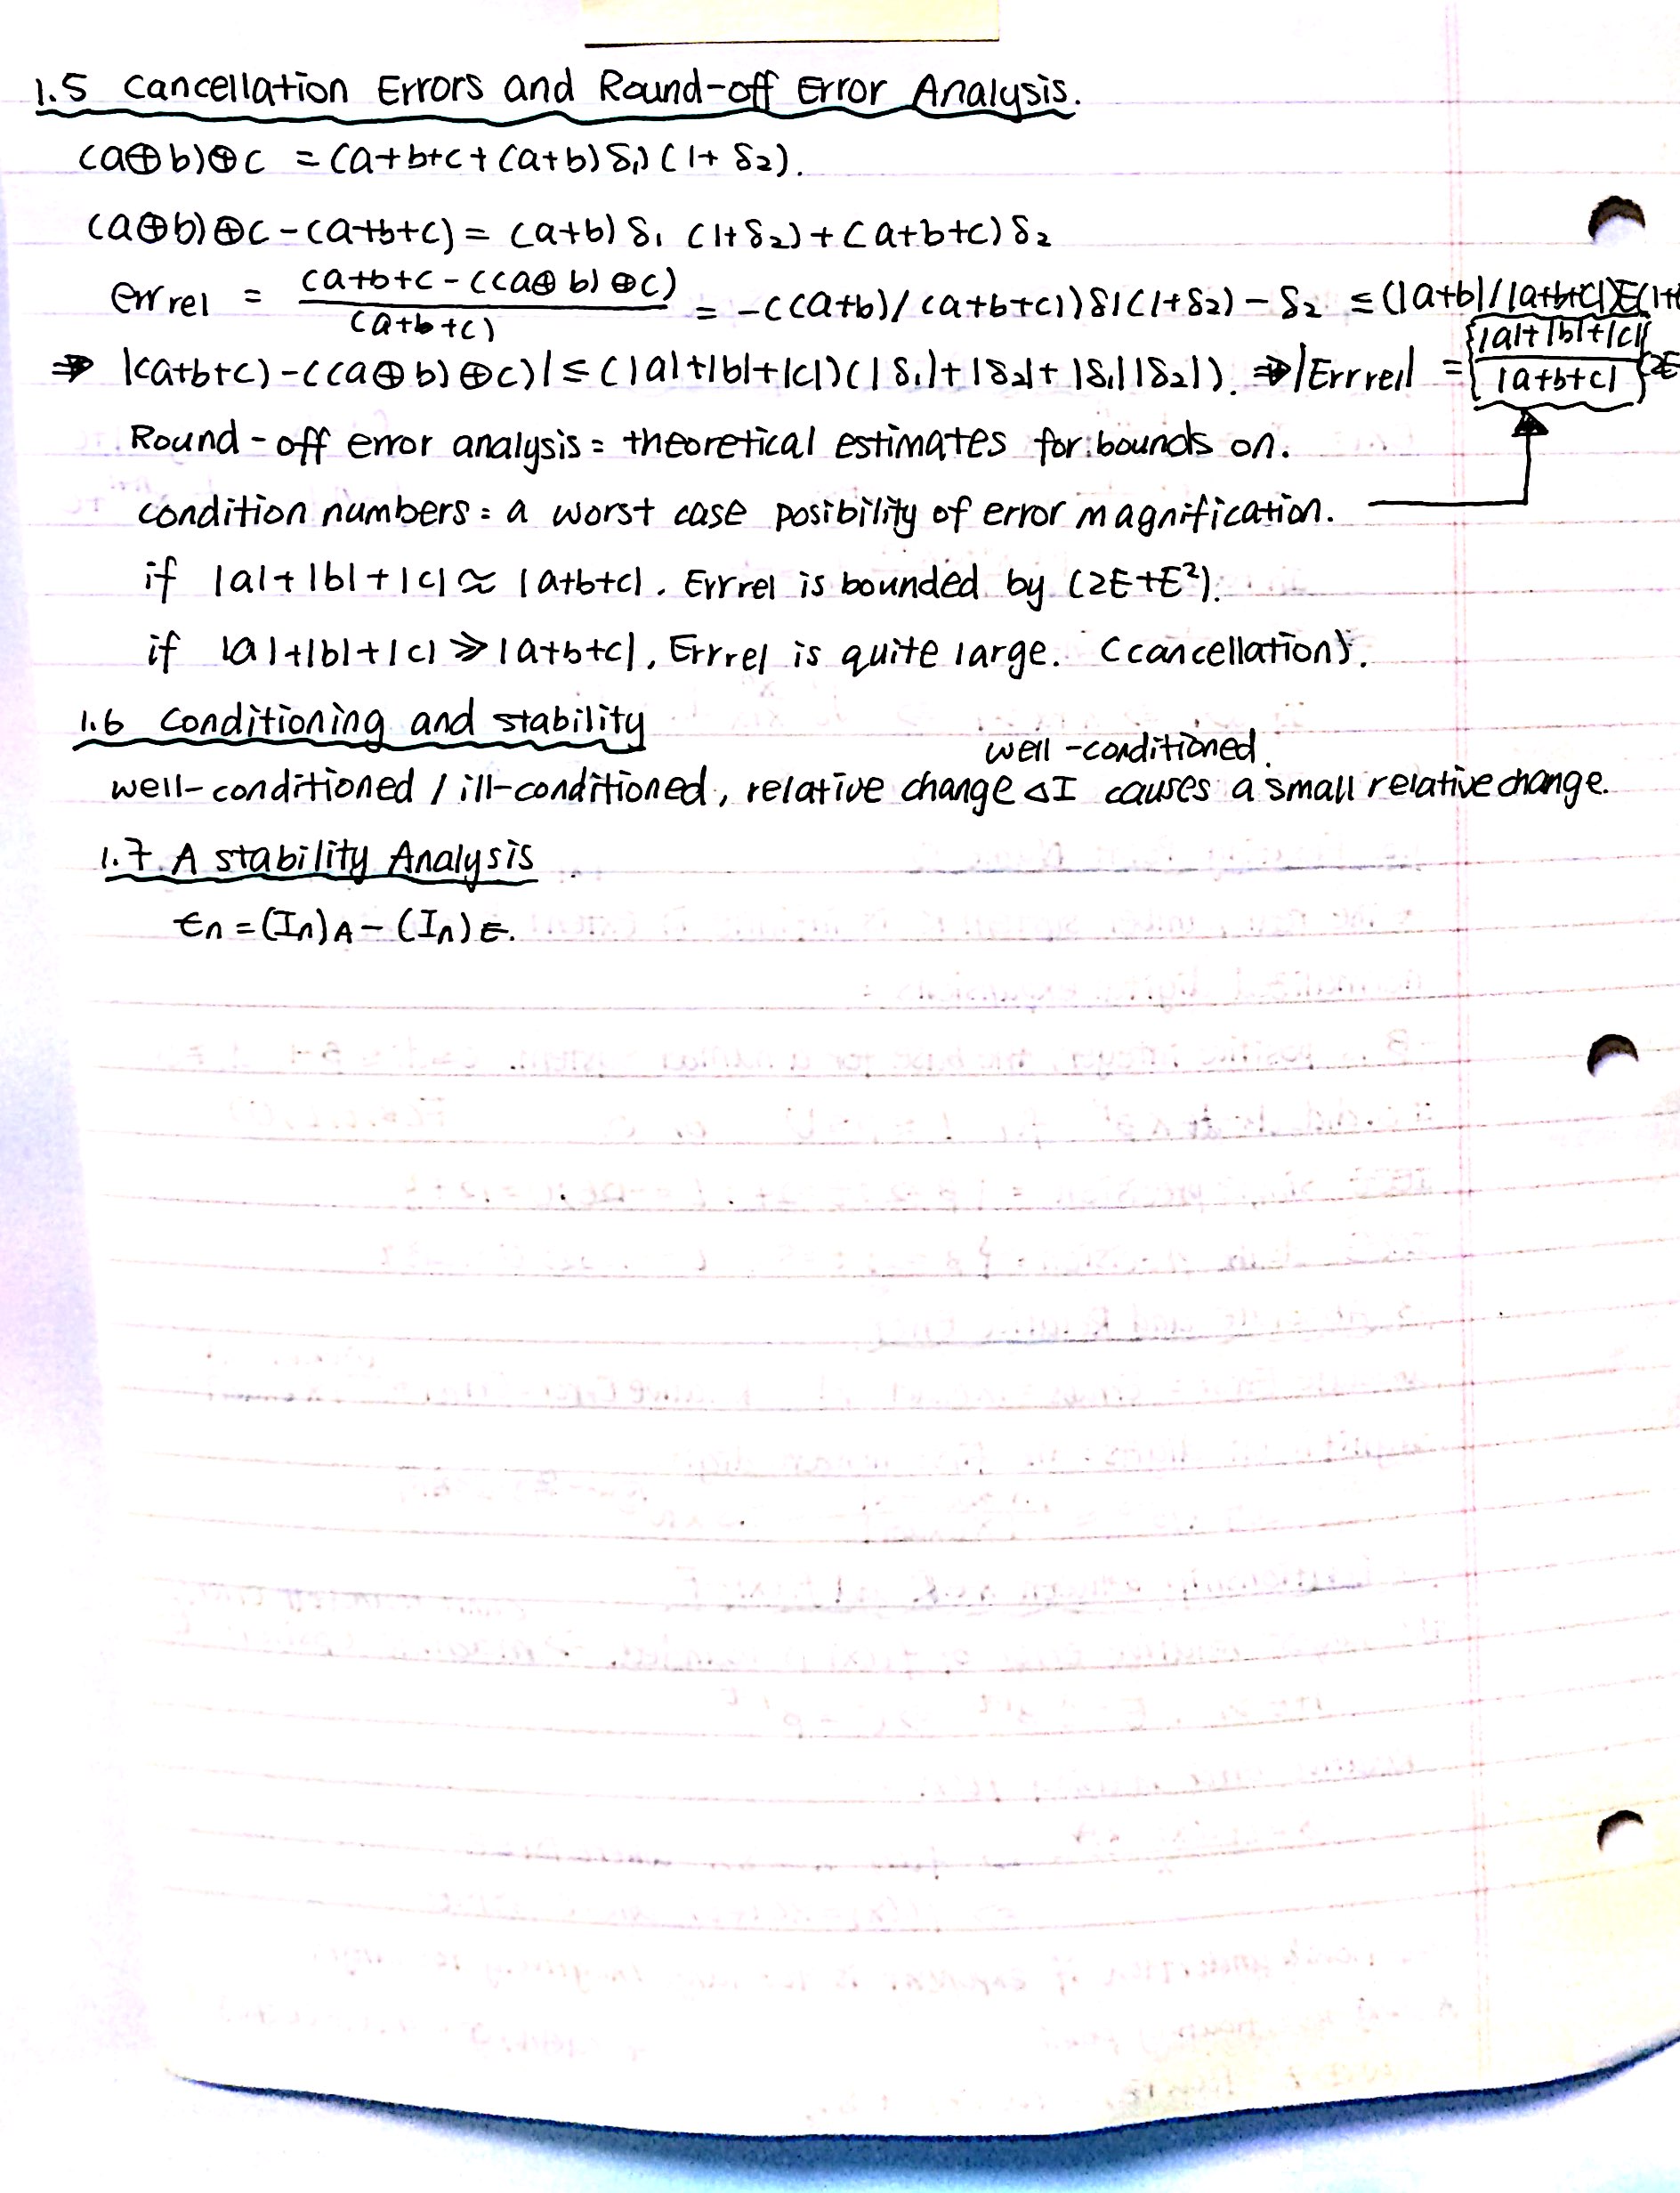 1.5 Cancellation Errors and Round-off Error Analysis.
(a⊕b)⊕c = (a+b+c+(a+b)δ₁)(1+δ₂).
(a⊕b)⊕c-(a+b+c) = (a+b)δ₁(1+δ₂)+(a+b+c)δ₂
Err rel = (a+b+c-((a⊕b)⊕c)/(a+b+c) = -((a+b)/(a+b+c))δ1(1+δ2)-δ2 ≤(|a+b|/|a+b+c|)E(1+
⇒ |(a+b+c)-((a⊕b)⊕c)|≤(|a|+|b|+|c|)(|δ₁|+|δ₂|+|δ₁||δ₂|). ⇒|Errrel| = {|a|+|b|+|c|/|a+b+c|}(2E
Round-off error analysis = theoretical estimates for bounds on.
condition numbers = a worst case posibility of error magnification.
if |a|+|b|+|c|≈|a+b+c|. Errrel is bounded by (2E+E²).
if |a|+|b|+|c|≫|a+b+c|, Errrel is quite large. (cancellation).
1.6 Conditioning and stability
well-conditioned.
well-conditioned / ill-conditioned, relative change ΔI causes a small relative change.
1.7 A stability Analysis
En = (In)A - (In)E.